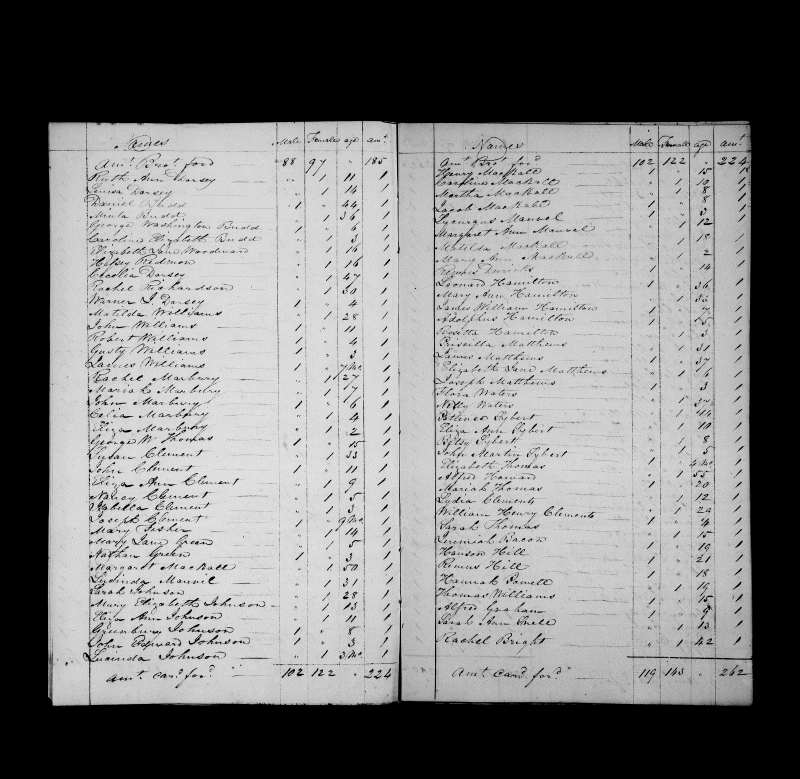 Names Male Female age amt.
Amt. Brot. ford 88 97 " 185
Ruth Ann Dorsey " 1 11 1
Louisa Dorsey " 1 14 1
Daniel Budd 1 " 44 1
Minta Budd " 1 36 1
George Washington Budd 1 " 6 1
Caroline Elizbeth Budd " 1 3 1
Elizabeth Jane Woodward " 1 16 1
Hepsy Redmon " 1 16 1
Cecelia Dorsey " 1 47 1
Rachel Richardson " 1 30 1
Warner J Dorsey 1 " 4 1
Matilda Williams " 1 28 1
John Williams 1 " 11 1
Robert Williams 1 " 4 1
Gusty Williams 1 " 3 1
James Williams 1 " 7 Mo. 1
Rachel Marbury " 1 27 1
Mariah Marbury " 1 7 1
John Marbury 1 " 6 1
Celia Marbury " 1 4 1
Eliza Marbury " 1 2 1
George W Thomas 1 " 15 1
Susan Clement " 1 33 1
John Clement 1 " 11 1
Eliza Ann Clement " 1 9 1
Nancy Clement " 1 5 1
Isabella Clement " 1 3 1
Joseph Clement 1 " 9 Mo. 1
Mary Fisher " 1 14 1
Mary Jane Green " 1 5 1
Nathan Green 1 " 3 1
Margaret Mackall " 1 50 1
Lucinda Manvil " 1 31 1
Sarah Johnson " 1 28 1
Mary Elizabeth Johnson " 1 13 1
Eliza Ann Johnson " 1 11 1
Greenbury Johnson 1 " 8 1
John Edward Johnson 1 " 3 1
Lucinda Johnson " 1 3 Mo. 1
Amt. card. ford. 102 122 " 224
Names Male Female age amt.
Amt. Brot. ford. 102 122 " 224
Henry Mackall 1 " 15 1
Caroline Mackall " 1 10 1
Martha Mackall " 1 8 1
Jacob Mackall 1 " 8 1
Lycurgus Manvel 1 " 3 1
Margaret Ann Manvel " 1 12 1
Matilda Mackall " 1 18 1
Mary Ann Mackall " 1 2 1
1 " 14 1
Leonard Hamilton 1 " 36 1
Mary Ann Hamilton " 1 33 1
James William Hamilton 1 " 7 1
Adolphus Hamilton 1 " 5 1
Rosetta Hamilton " 1 3 1
Priscilla Matthews " 1 31 1
James Matthews 1 " 37 1
Elizabeth Jane Matthews " 1 6 1
Joseph Matthews 1 " 3 1
Flora Waters " 1 37 1
Kitty Waters " 1 44 1
Sybert " 1 10 1
Eliza Ann Sybert " 1 8 1
Betsy Sybert " 1 5 1
John Martin Sybert 1 " 4 Mo. 1
Elizabeth Thomas " 1 55 1
Alfred Howard 1 " 20 1
Mariah Thomas " 1 12 1
Lydia Clements " 1 29 1
William Henry Clements 1 " 4 1
Sarah Thomas " 1 15 1
Jeremiah Bacon 1 " 19 1
Hanson Hill 1 " 21 1
Remus Hill 1 " 18 1
Hannah Powell " 1 19 1
Thomas Williams 1 " 15 1
Alfred Graham 1 " 9 1
Sarah Ann Snell " 1 13 1
Rachel Bright " 1 42 1
Amt. card. ford. 119 143 " 262